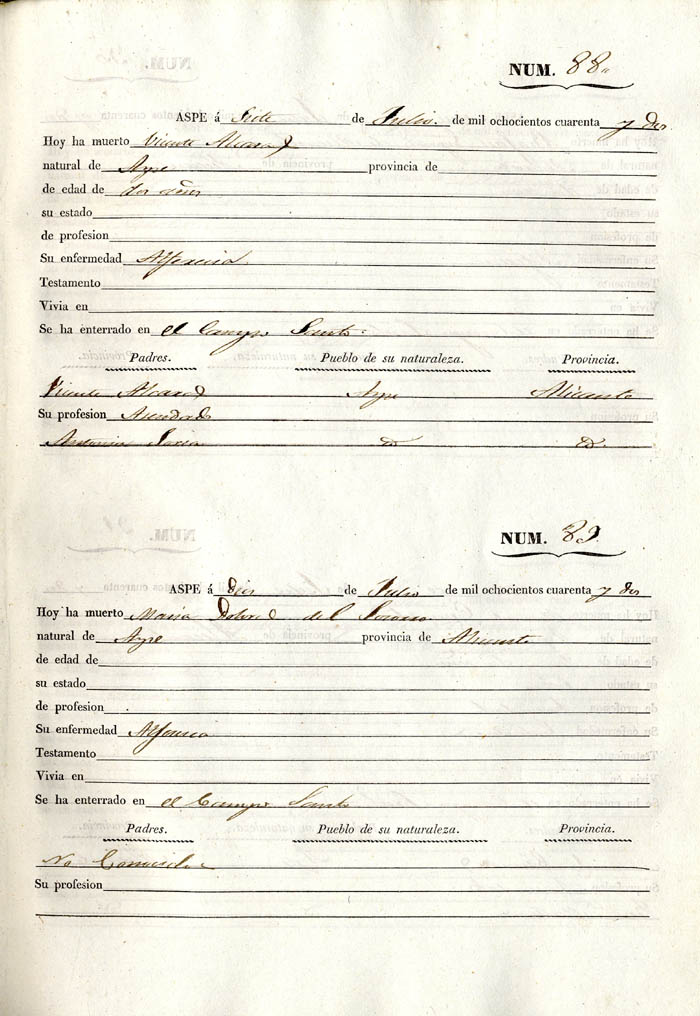 NUM. 88.
ASPE á Siete de Julio. de mil ochocientos cuarenta y dos
Hoy ha muerto Vicente Alcaraz
natural de Aspe provincia de
de edad de dos años
su estado
de profesion
Su enfermedad Alferecia
Testamento
Vivia en
Se ha enterrado en el Campo Santo.
Padres. Pueblo de su naturaleza. Provincia.
Vicente Alcaraz Aspe Alicante
Su profesion
Antonia Soria id id.
NUM. 89.
ASPE á diez de Julio de mil ochocientos cuarenta y dos
Hoy ha muerto Maria Dolores del Socorro
natural de Aspe provincia de Alicante
de edad de
su estado
de profesion
Su enfermedad Alferecia
Testamento
Vivia en
Se ha enterrado en el Campo Santo
Padres. Pueblo de su naturaleza. Provincia.
No Conocidos
Su profesion